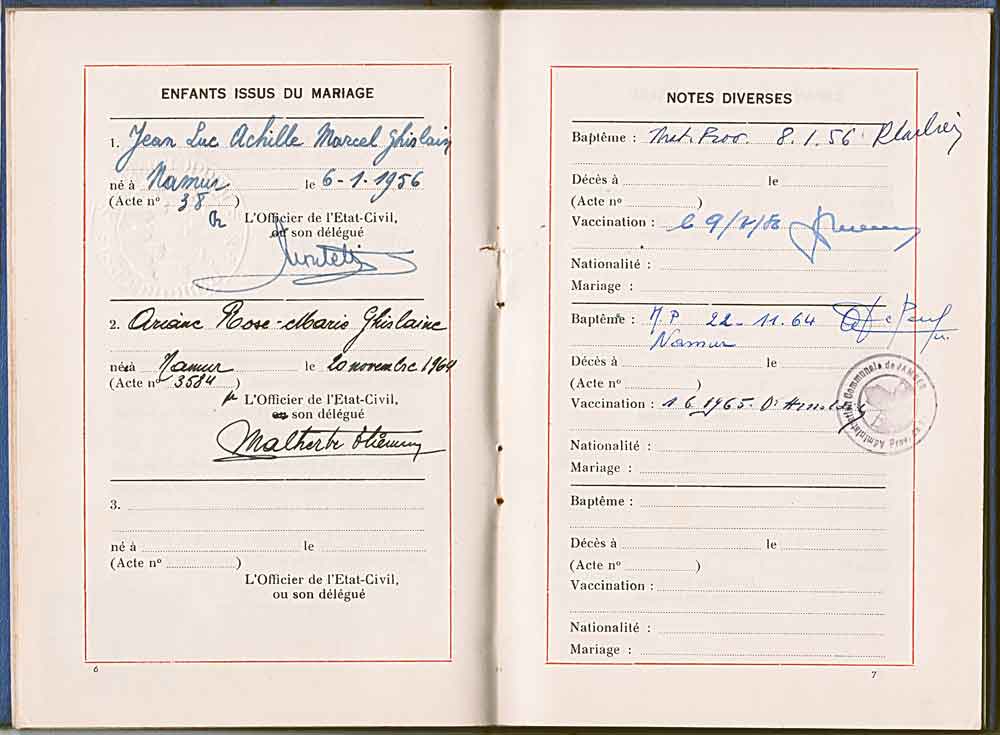 ENFANTS ISSUS DU MARIAGE
1. Jean Luc Achille Marcel Ghislain
né à Namur le 6-1-1956
(Acte nº 38)
L'Officier de l'Etat-Civil,
ou son délégué
2. Ariane Rose-Marie Ghislaine
née à Namur le 20 novembre 1964
(Acte nº 3584)
L'Officier de l'Etat-Civil,
ou son délégué
Malherbe
3.
né à le
(Acte nº )
L'Officier de l'Etat-Civil,
ou son délégué
6
NOTES DIVERSES
Baptême : 8.1.56
Décès à le
(Acte nº )
Vaccination :
Nationalité :
Mariage :
Baptême : 22-11.64
Namur
Décès à le
(Acte nº )
Vaccination : 1.6.1965. Dr
Administration Communale de
Nationalité :
Mariage :
Baptême :
Décès à le
(Acte nº )
Vaccination :
Nationalité :
Mariage :
7